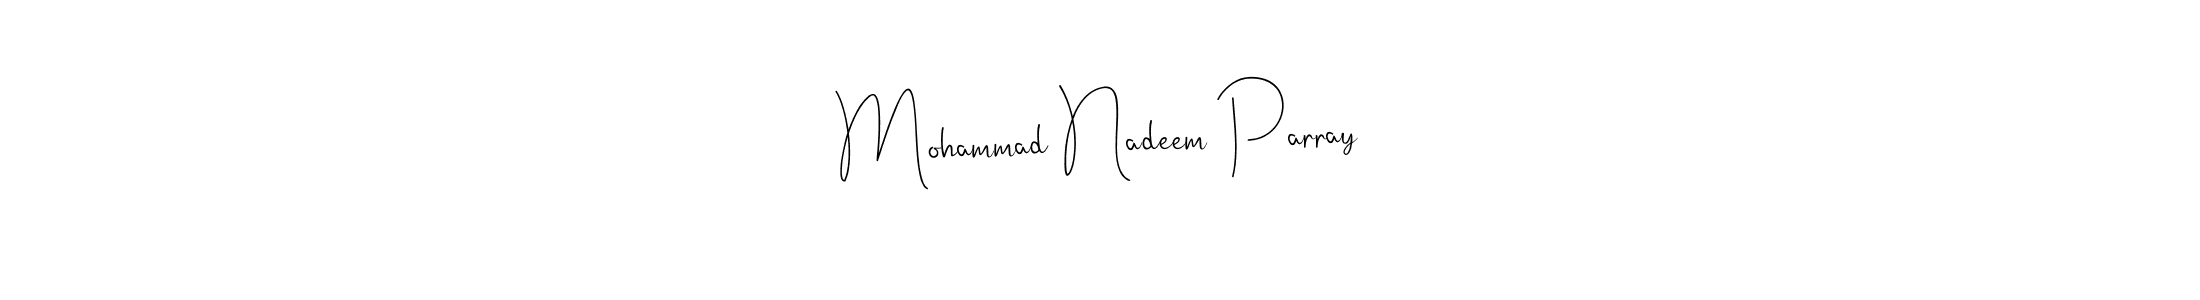 Mohammad Nadeem Parray